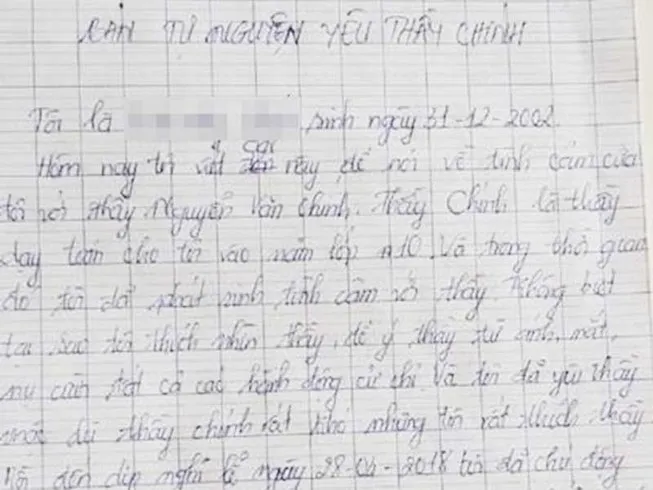 BẢN TỰ NGUYỆN YÊU THẦY CHÍNH
Tôi là , sinh ngày 31-12-2002
Hôm nay tôi viết cái này để nói về tình cảm của
tôi với thầy Nguyễn Văn Chính. Thầy Chính là thầy
dạy toán cho tôi vào năm lớp 10. Và trong thời gian
đó tôi đã phát sinh tình cảm với thầy. Không biết
tại sao tôi thích nhìn thầy, để ý thầy từ ánh mắt,
nụ cười tất cả các hành động cử chỉ. Và tôi đã yêu thầy
mặc dù thầy chính rất nhưng tôi rất thích thầy
đến dịp nghỉ lễ ngày 28-04-2018 tôi đã chủ động